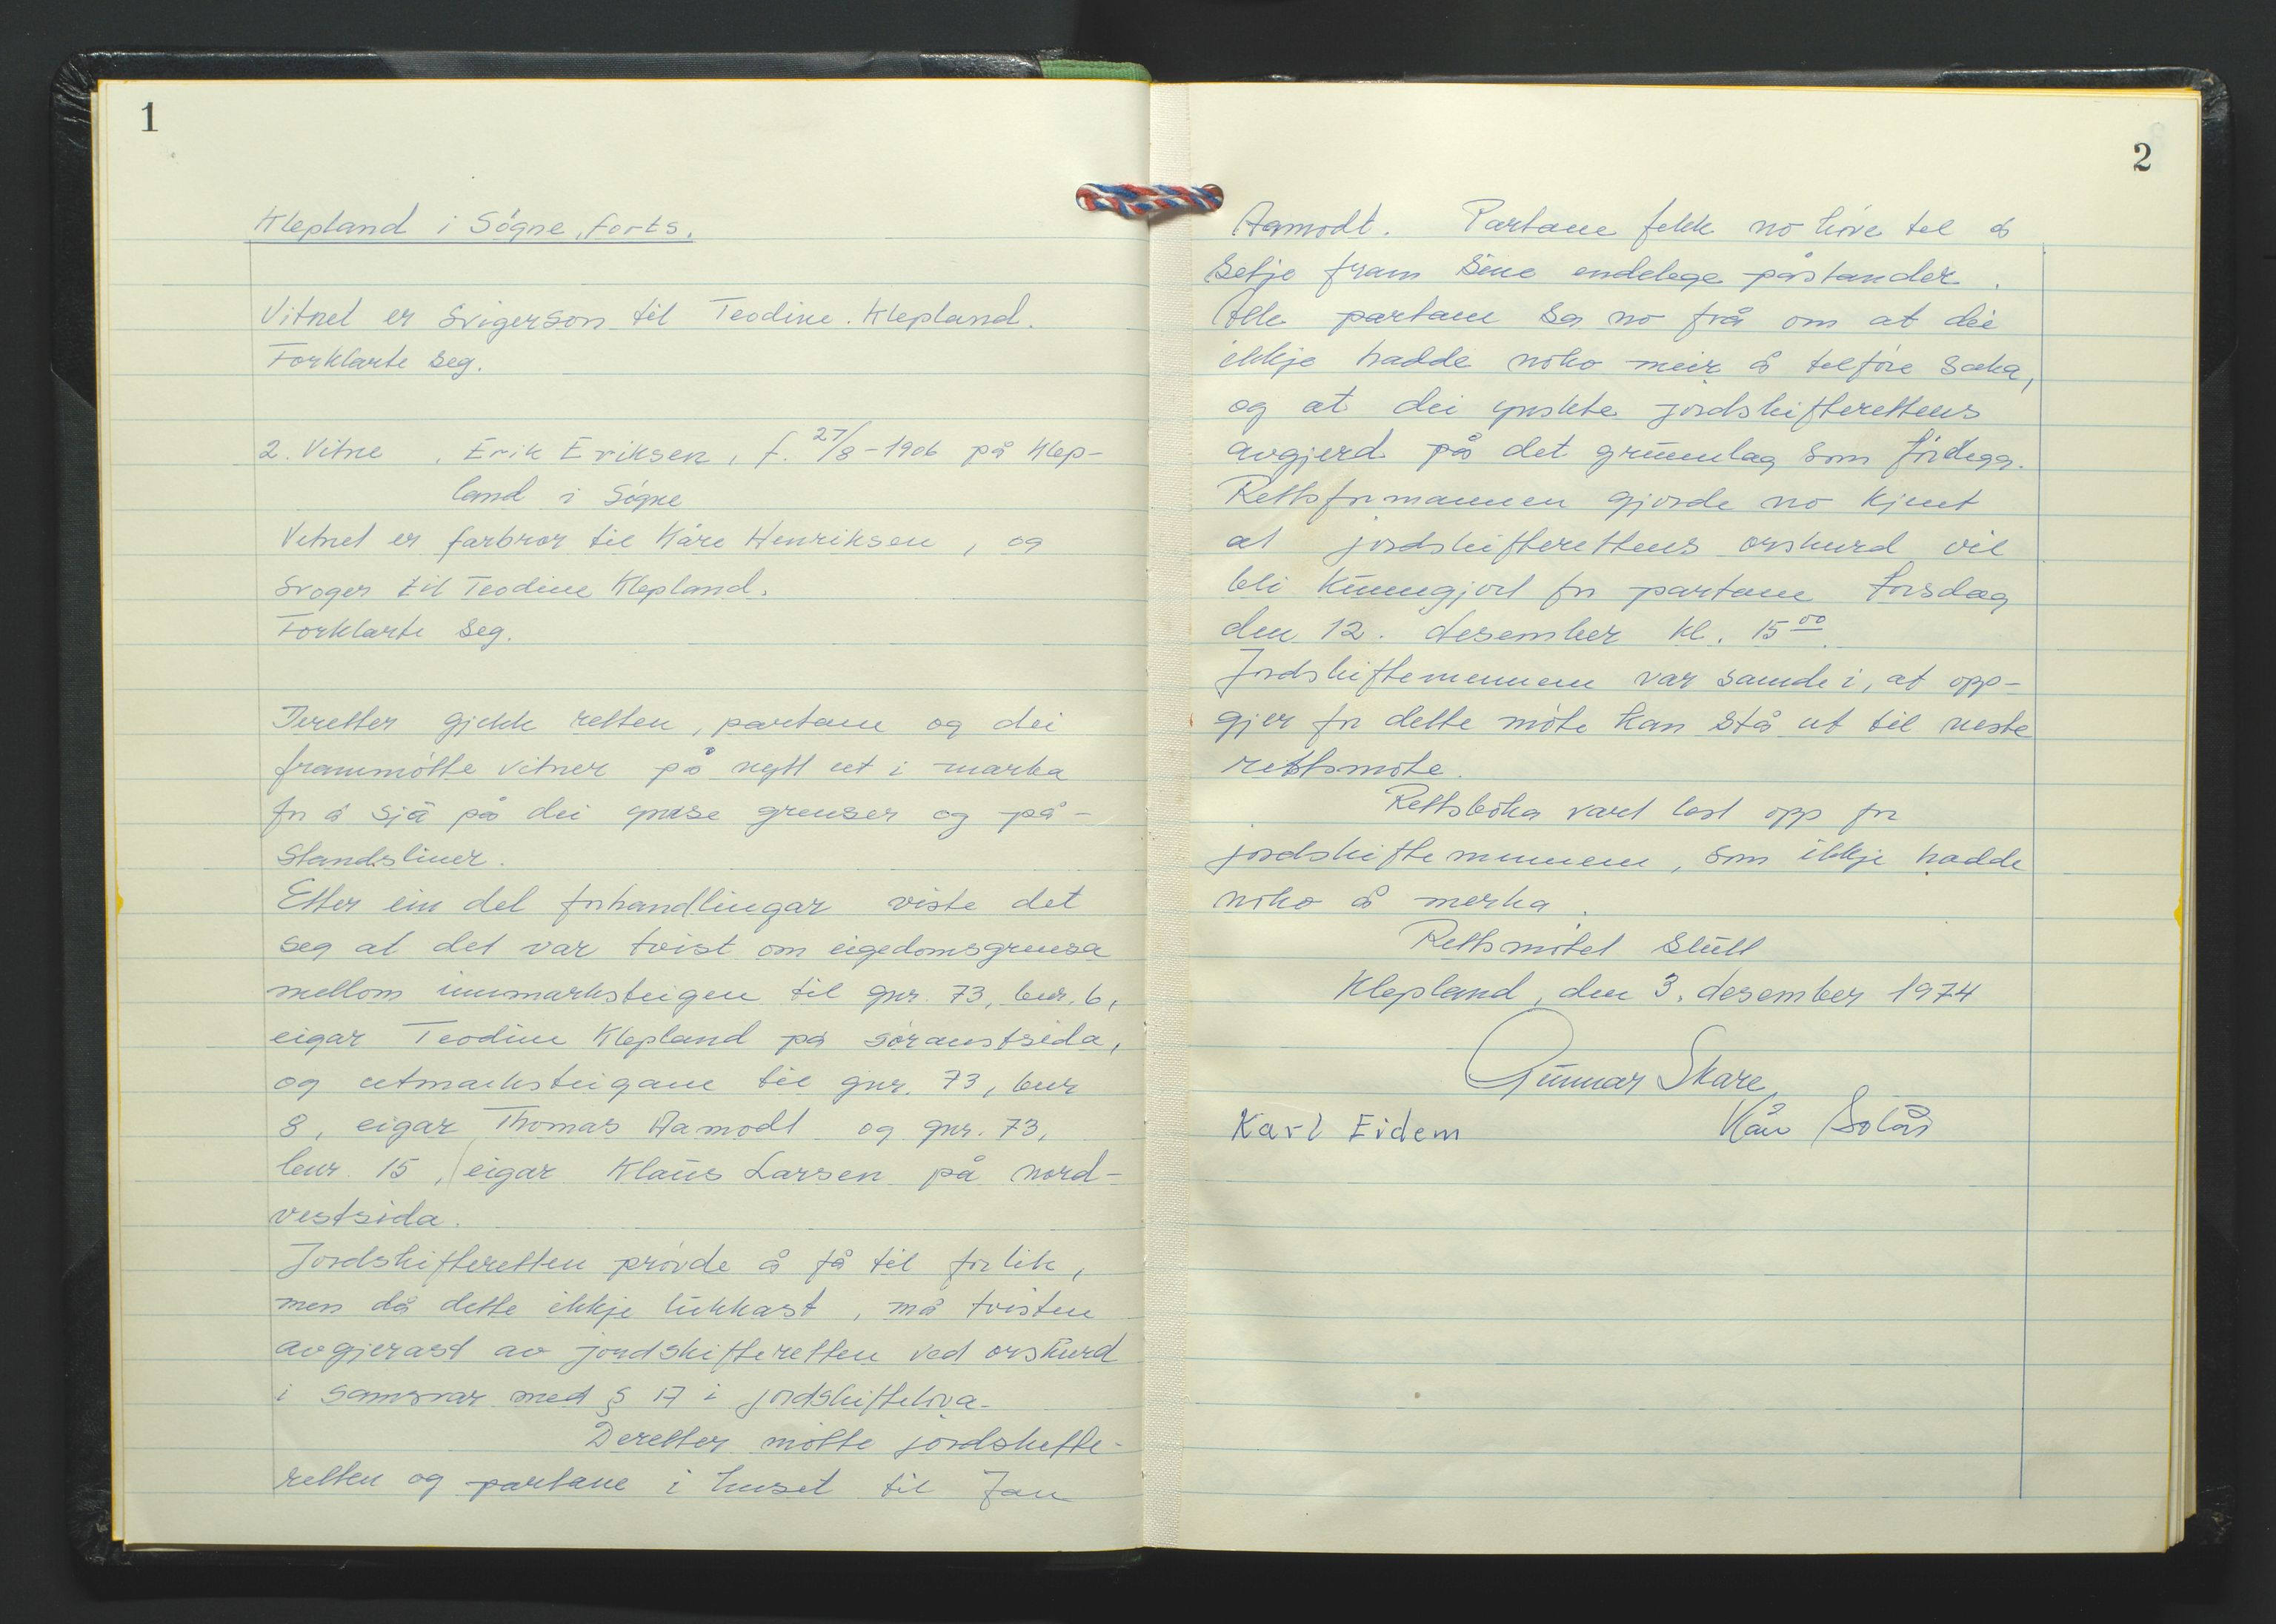 1
Klepland i Søgne, forts.
Vitnet er Svigerson til Teodine Klepland.
Forklarte seg.
2. Vitne, Erik Eriksen, f. 27/8-1906 på Klep-
land i Søgne
Vitnet er farbror til Kåre Henriksen, og
Svoger til Teodine Klepland.
Forklarte seg.
Deretter gjekk retten, partane og dei
frammøtte vitner på nytt ut i marka
for å sjå på dei ymse grenser og på-
standsliner.
Etter ein del forhandlingar viste det
seg at det var tvist om eigedomsgrensa
mellom innmarksteigen til gnr. 73, bnr. 6,
eigar Teodine Klepland på søraustsida,
og utmarksteigane til gnr. 73, bnr
8, eigar Thomas Aamodt og gnr. 73,
bnr. 15, eigar Klaus Larsen på nord-
vestsida.
Jordskifteretten prøvde å få til forlik,
men då dette ikkje lukkast, må tvisten
avgjerast av jordskifteretten ved orskurd
i samsvar med § 17 i jordskiftelova.
Deretter møtte jordskifte-
retten og partane i huset til Jan
2
Aamodt. Partane fekk no høve til å
setje fram sine endelege påstander.
Alle partane sa no frå om at dei
ikkje hadde noko meir å tilføre saka,
og at dei ynskte jordskifterettens
avgjerd på det grunnlag som føreligg.
Rettsformannen gjorde no kjent
at jordskifterettens orskurd vil
bli kunngjort for partane torsdag
den 12. desember kl. 15 00.
Jordskiftemennene var samde i, at opp-
gjer for dette møte kan stå ut til neste
rettsmøte.
Rettsboka vart lest opp for
jordskiftemennene, som ikkje hadde
noko å merka.
Rettsmøtet slutt
Klepland, den 3. desember 1974
Gunnar Skare
Karl Eidem Kåre Solås